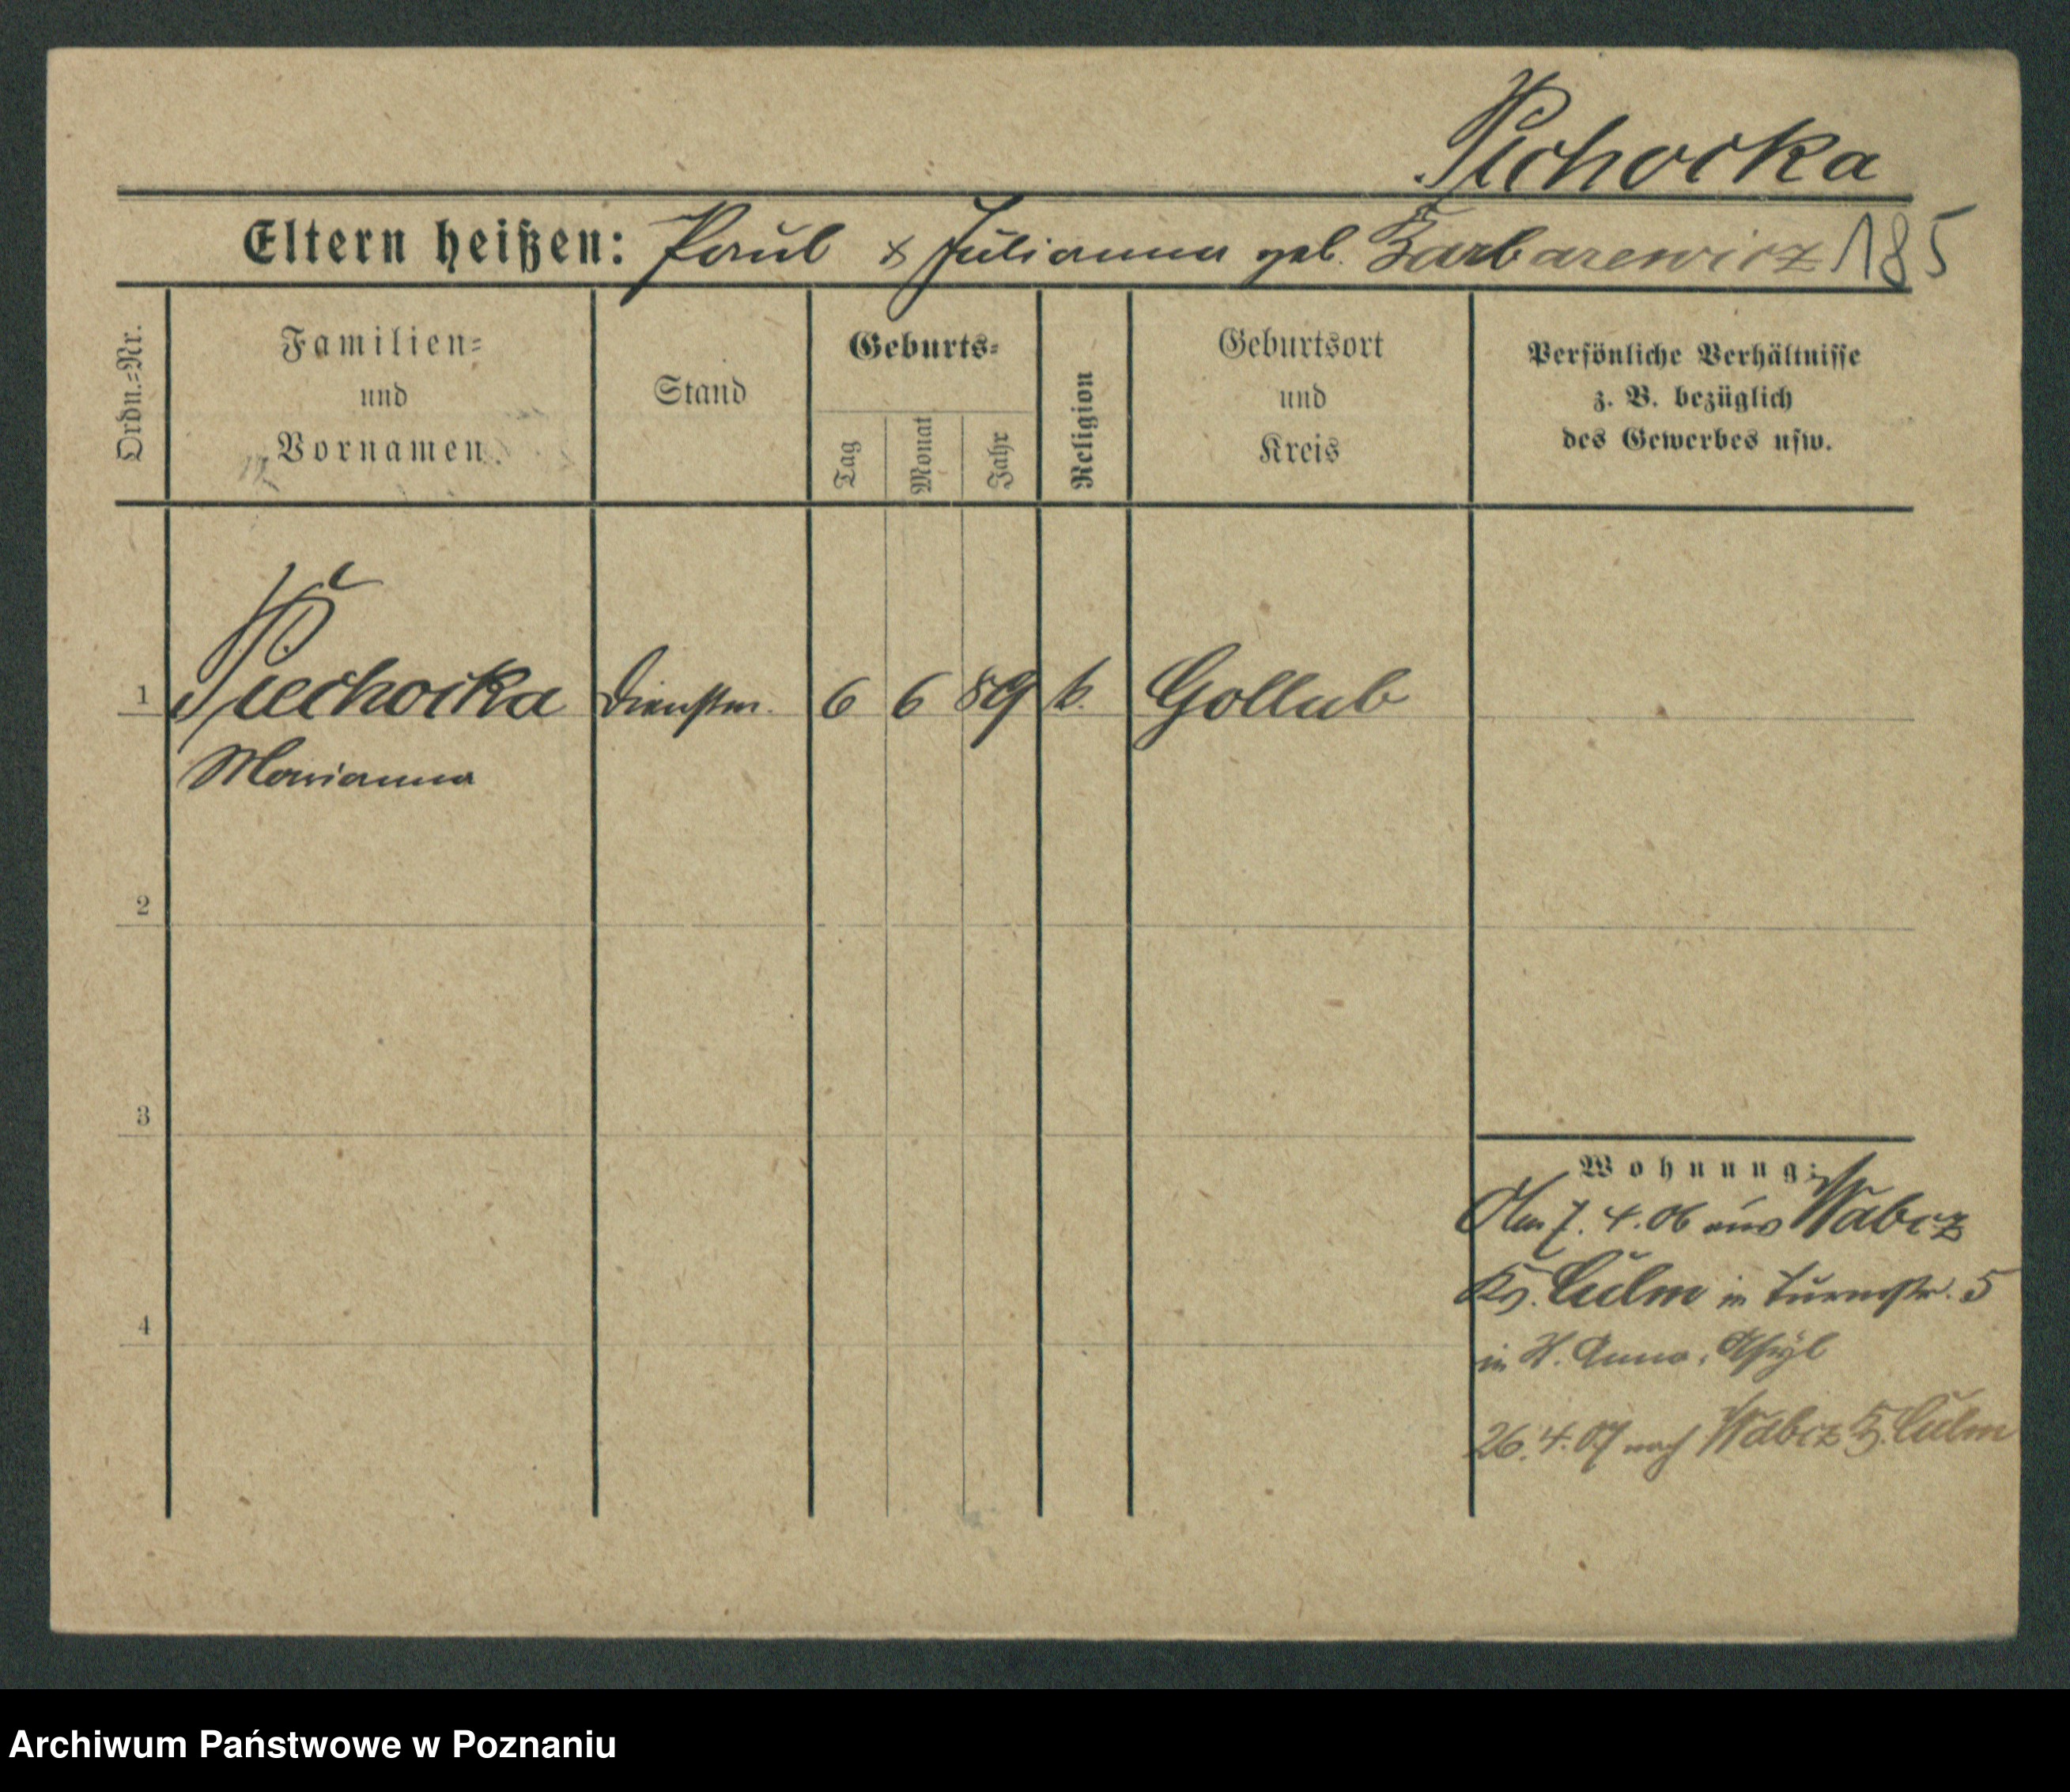 Pichocka
Eltern heißen: Paul & Julianna geb. Barbarewicz 185
Ordn.=Nr.
Familien= und Vornamen.
Stand
Geburts=
Tag
Monat
Jahr
Religion
Geburtsort und Kreis
Persönliche Verhältnisse
z. B. bezüglich
des Gewerbes usw.
1 Piechocka Dienstm. 6 6 89 k. Gollub
Marianna
2
3
4
Wohnung:
Am 7. 4. 06 aus Wabcz
Kr. Culm in Turmstr. 5
in St. Anna, Asyl
26. 4. 07 nach Wabcz Kr. Culm
Archiwum Państwowe w Poznaniu